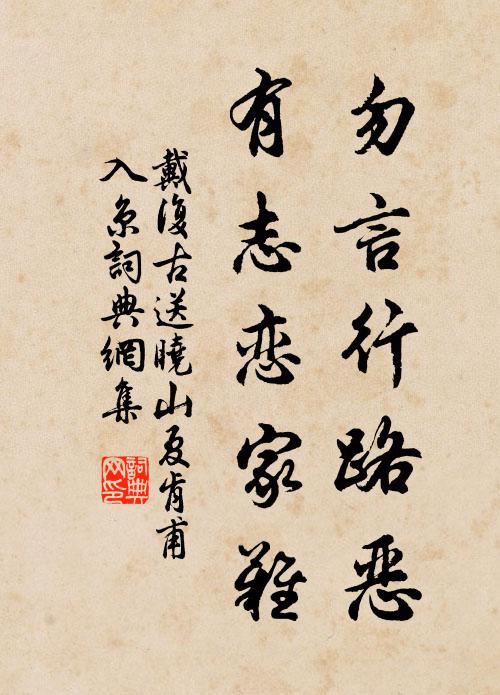 勿言行路惡
有志恋家難
戴復古送曉山夏肯甫
入京詞典網集
詞典
网印